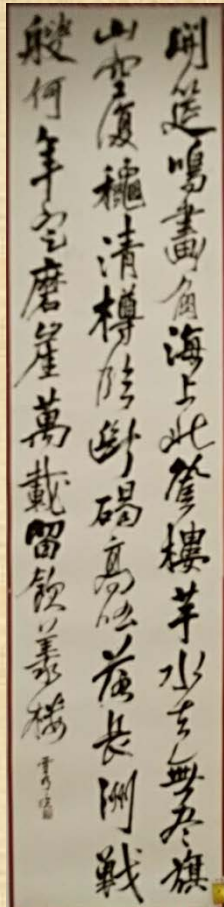 開筵鳴畫角海上此登樓芋水去無盡旗
山空復穐清樽臨斷碣高吟落長洲戰
艘何年定磨崖萬載留飲樓